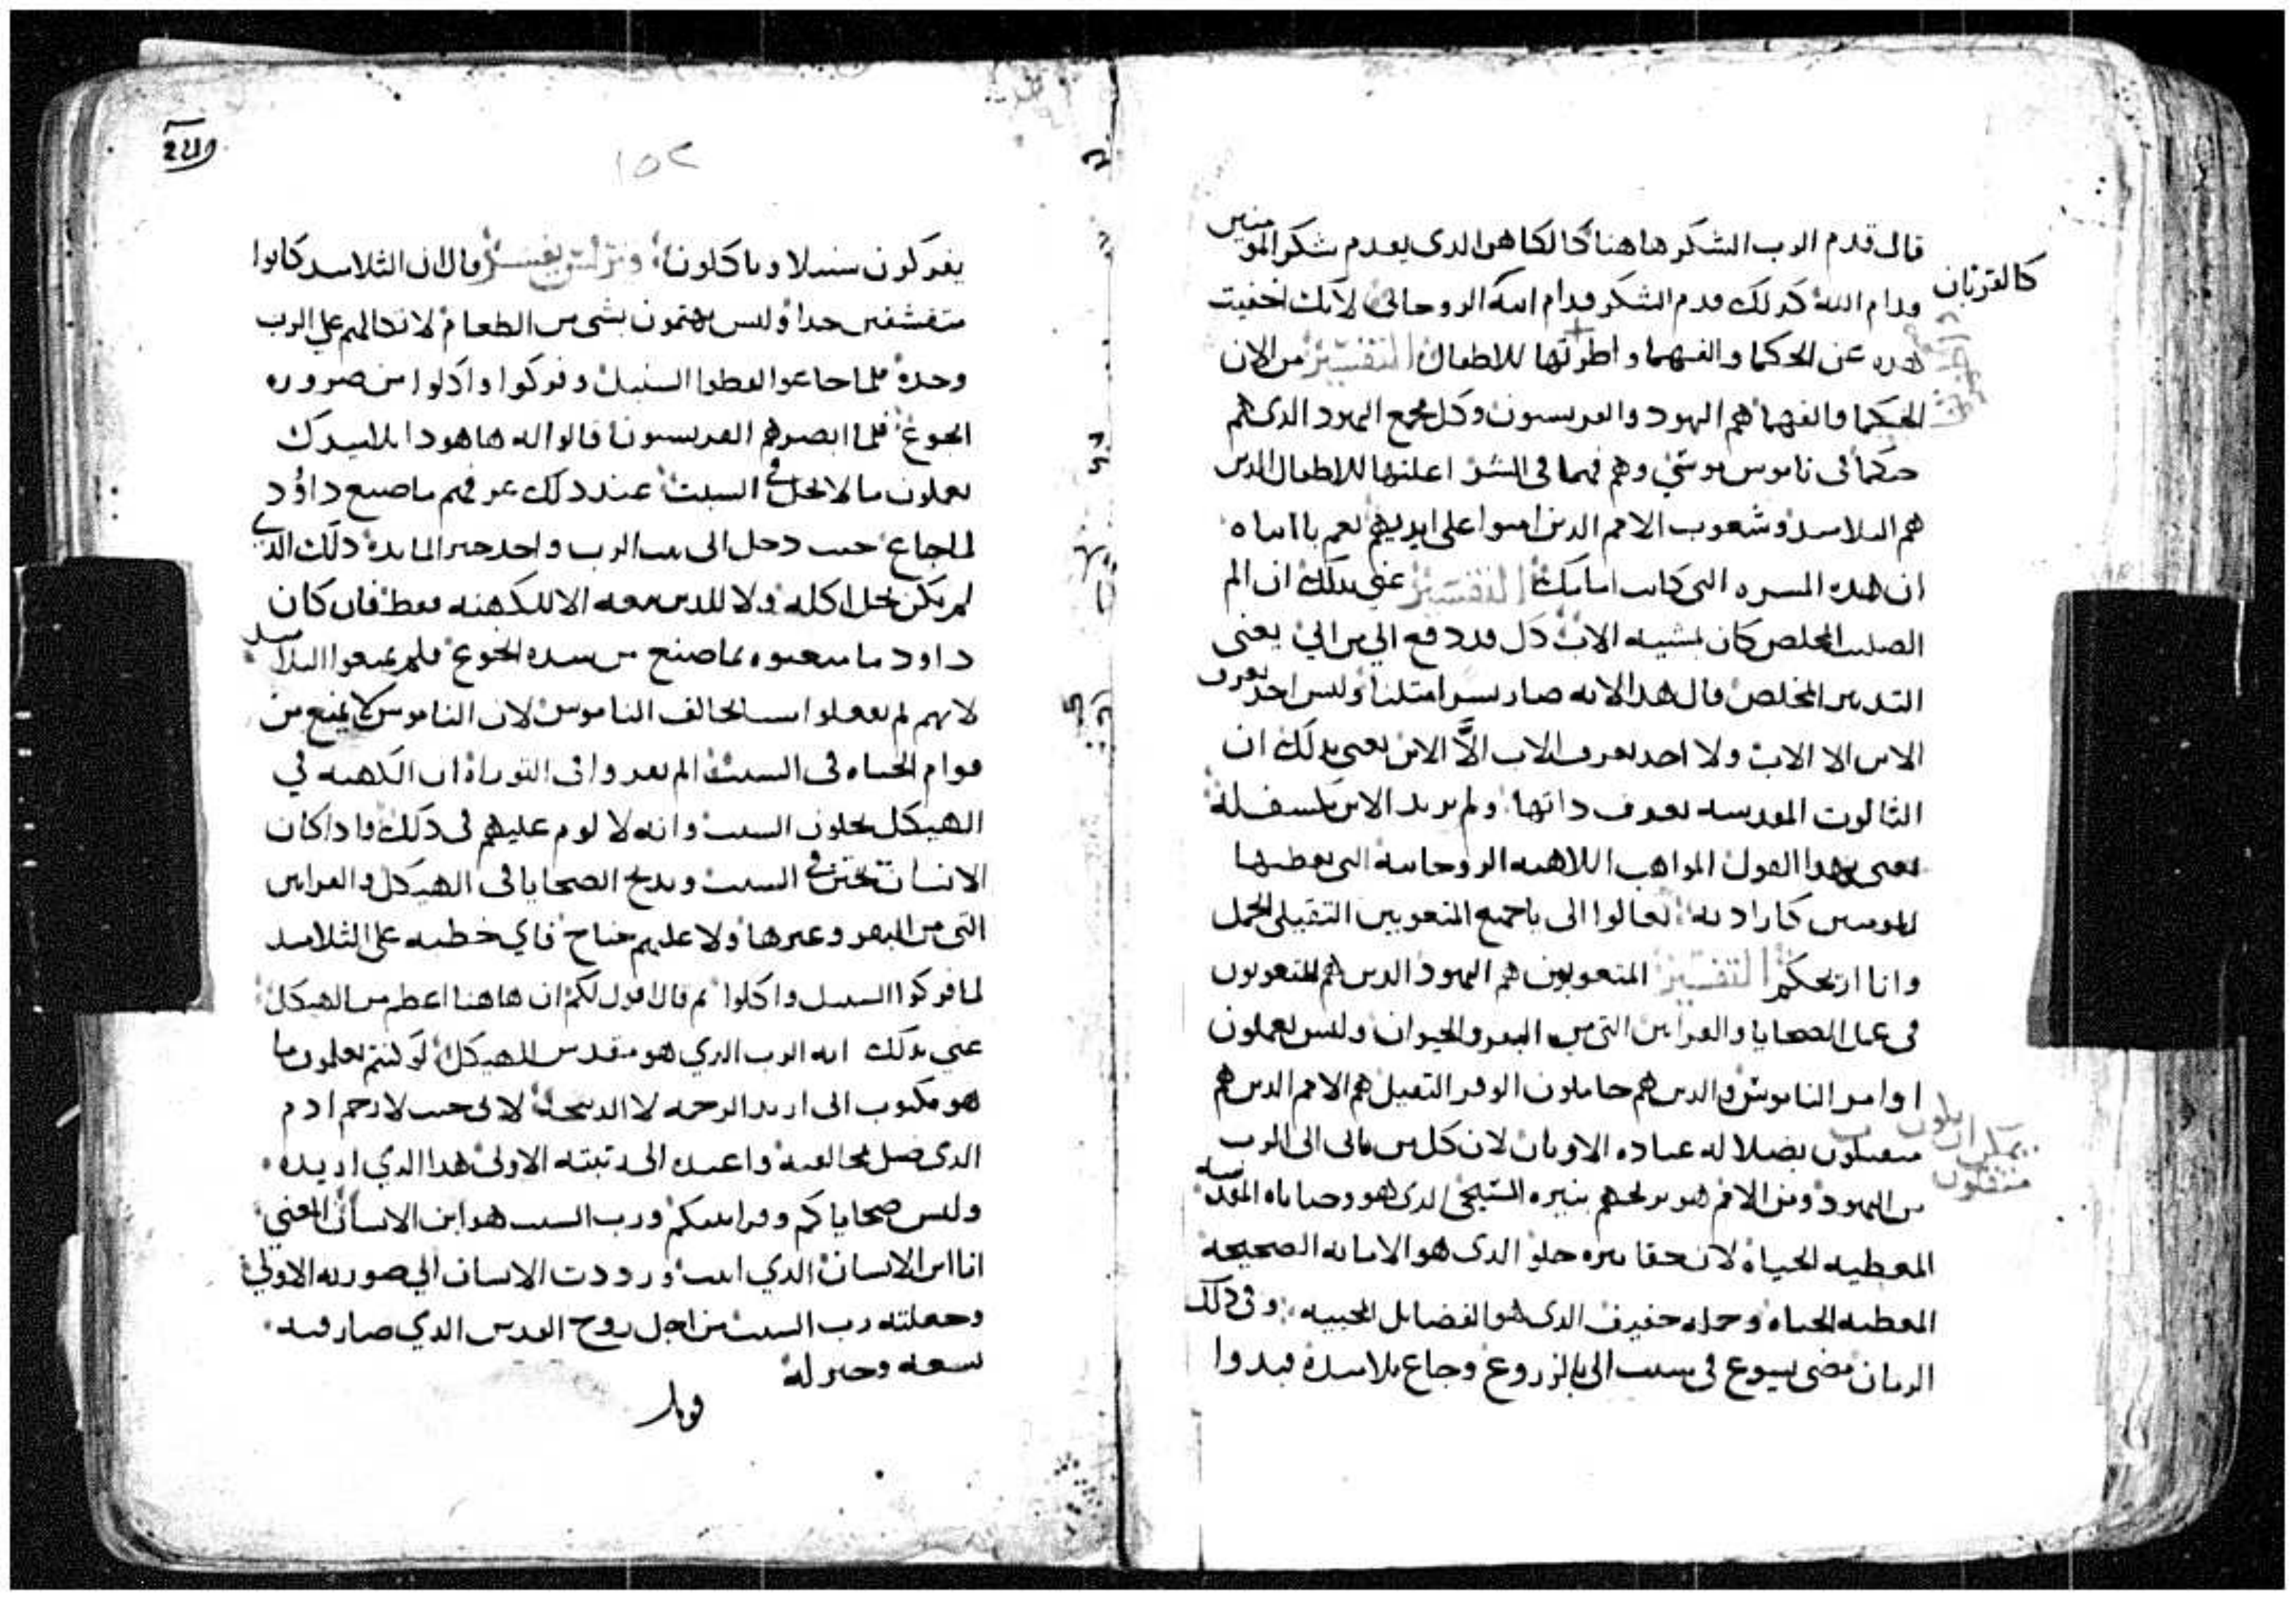 قال قدم الرب الشكر هاهنا كالكاهن الدى يقدم شكر المومنين
كالقربان
قدام الله كدلك قدم الشكر قدام ابيه الروحانى لانك اخفيت
هده عن الحكما والفهما واظهرتها للاطفال التفسير من الان
الحكما والفهما هم اليهود والفريسيون وكل مجمع اليهود الدى هم
حكما فى ناموس موسى وهم فهما فى الشر اعلنها للاطفال الدين
هم التلاميد وشعوب الامم الدين امنوا على ايديهم نعم يا ابتاه
ان هده المسره التى كانت امامك التفسير عنى بدلك ان الم
الصليب المخلص كان بمشيه الاب كل قد دفع الي من ابي يعنى
التدبير المخلص قال هدا لانه صار بشرا متلنا وليس احد يعرف
الابن الا الاب ولا احد يعرف الاب الا الابن يعنى بدلك ان
الثالوت المقدسه تعرف داتها ولم يريد الابن يكشف له
يعنى بهدا القول المواهب اللاهيه الروحانيه التى يعطيها
للمومنين كارادته تعالوا الى ياجميع المتعوبين التقيلى الحمل
وانا اريحكم التفسير المتعوبون هم اليهود الدين هم المتعوبون
فى عمل الضحايا والقرابين التى من البقر والحيوان وليس يعملون
اوامر الناموس والدين هم حاملون الوقر التقيل هم الامم الدين هم
متقلون بضلاله عباده الاوتان لان كل من ياتى الى الرب
من اليهود ومن الامم هو يريحهم بنيره المسيحى الدى هو وصاياه المقدسه
المعطيه الحياه لان حقا نيره حلو الدى هو الامانه الصحيحه
المعطيه الحياه وحمله خفيف الدى هو الفضايل المحييه وفى دلك
الزمان مضى يسوع فى سبت الى الزروع وجاع تلاميده فبدوا
١٥٢
يفركون سنبلا وياكلون التفسير قال ان التلاميد كانوا
متقشفين جدا وليس يهتمون بشى من الطعام لاتكالهم على الرب
وحده فلما جاعوا لقطوا السنبل وفركوا واكلوا من ضروره
الجوع فلما ابصرهم الفريسيون قالوا له هاهودا تلاميدك
يعملون ما لا يحل فى السبت عند دلك عرفهم ما صنع داوود
لما جاع حيت دخل الى بيت الرب واخد خبز المايده دلك الدي
لم يكن يحل اكله ولا للدين معه الا للكهنه فقط فان كان
داود ما منعوه بما صنع من شده الجوع فلم يمنعوا التلاميد
لانهم لم يفعلوا شيا يخالف الناموس لان الناموس لا يمنع من
قوام الحياه فى السبت الم تقروا فى التوراة ان الكهنه في
الهيكل يحلون السبت وانه لا لوم عليهم فى دلك وادا كان
الانسان يختن فى السبت ويدبح الضحايا فى الهيكل والقرابين
التى من البقر وغيرها ولا عليهم جناح فاي خطيه على التلاميد
لما فركوا السنبل واكلوا تم قال اقول لكم ان هاهنا اعظم من الهيكل
عني بدلك انه الرب الدي هو مقدس الهيكل لو كنتم تعلمون ما
هو مكتوب انى اريد الرحمه لا الدبيحه لانى جيت لارحم ادم
الدى ضل بمخالفته واعيده الى رتبته الاولى هدا الدي اريده
وليس ضحاياكم وقرابينكم ورب السبت هو ابن الانسان المعني
انا ابن الانسان الدي اتيت ورددت الانسان الي صورته الاولي
وجعلته رب السبت من اجل روح القدس الدي صار فيه
نسمه وخير له